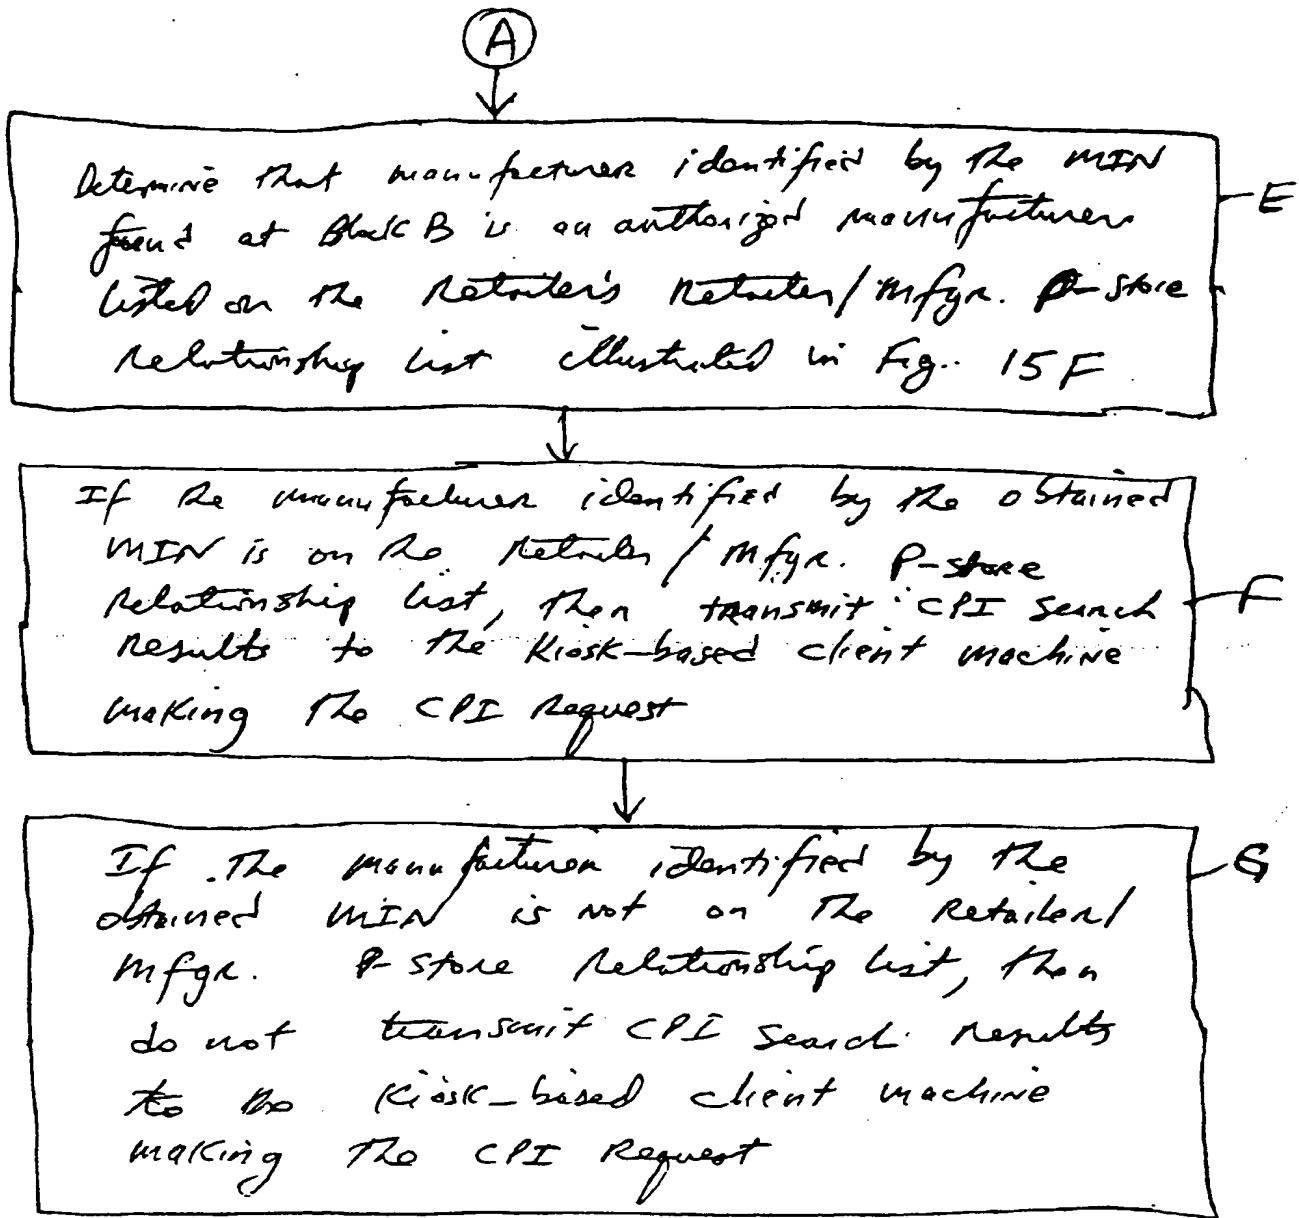 A
Determine that manufacturer identified by the MIN
found at Block B is an authorized manufacturer
E
listed on the Retailer's Retailer/Mfgr. P-store
Relationship list illustrated in Fig. 15F
If the manufacturer identified by the obtained
MIN is on the Retailer/Mfgr. P-store
Relationship list, then transmit CPI Search
F
Results to the Kiosk-based client machine
making the CPI Request
If the manufacturer identified by the
G
obtained MIN is not on the Retailer/
Mfgr. P-store Relationship list, then
do not transmit CPI Search Results
to the Kiosk-based client machine
making the CPI Request